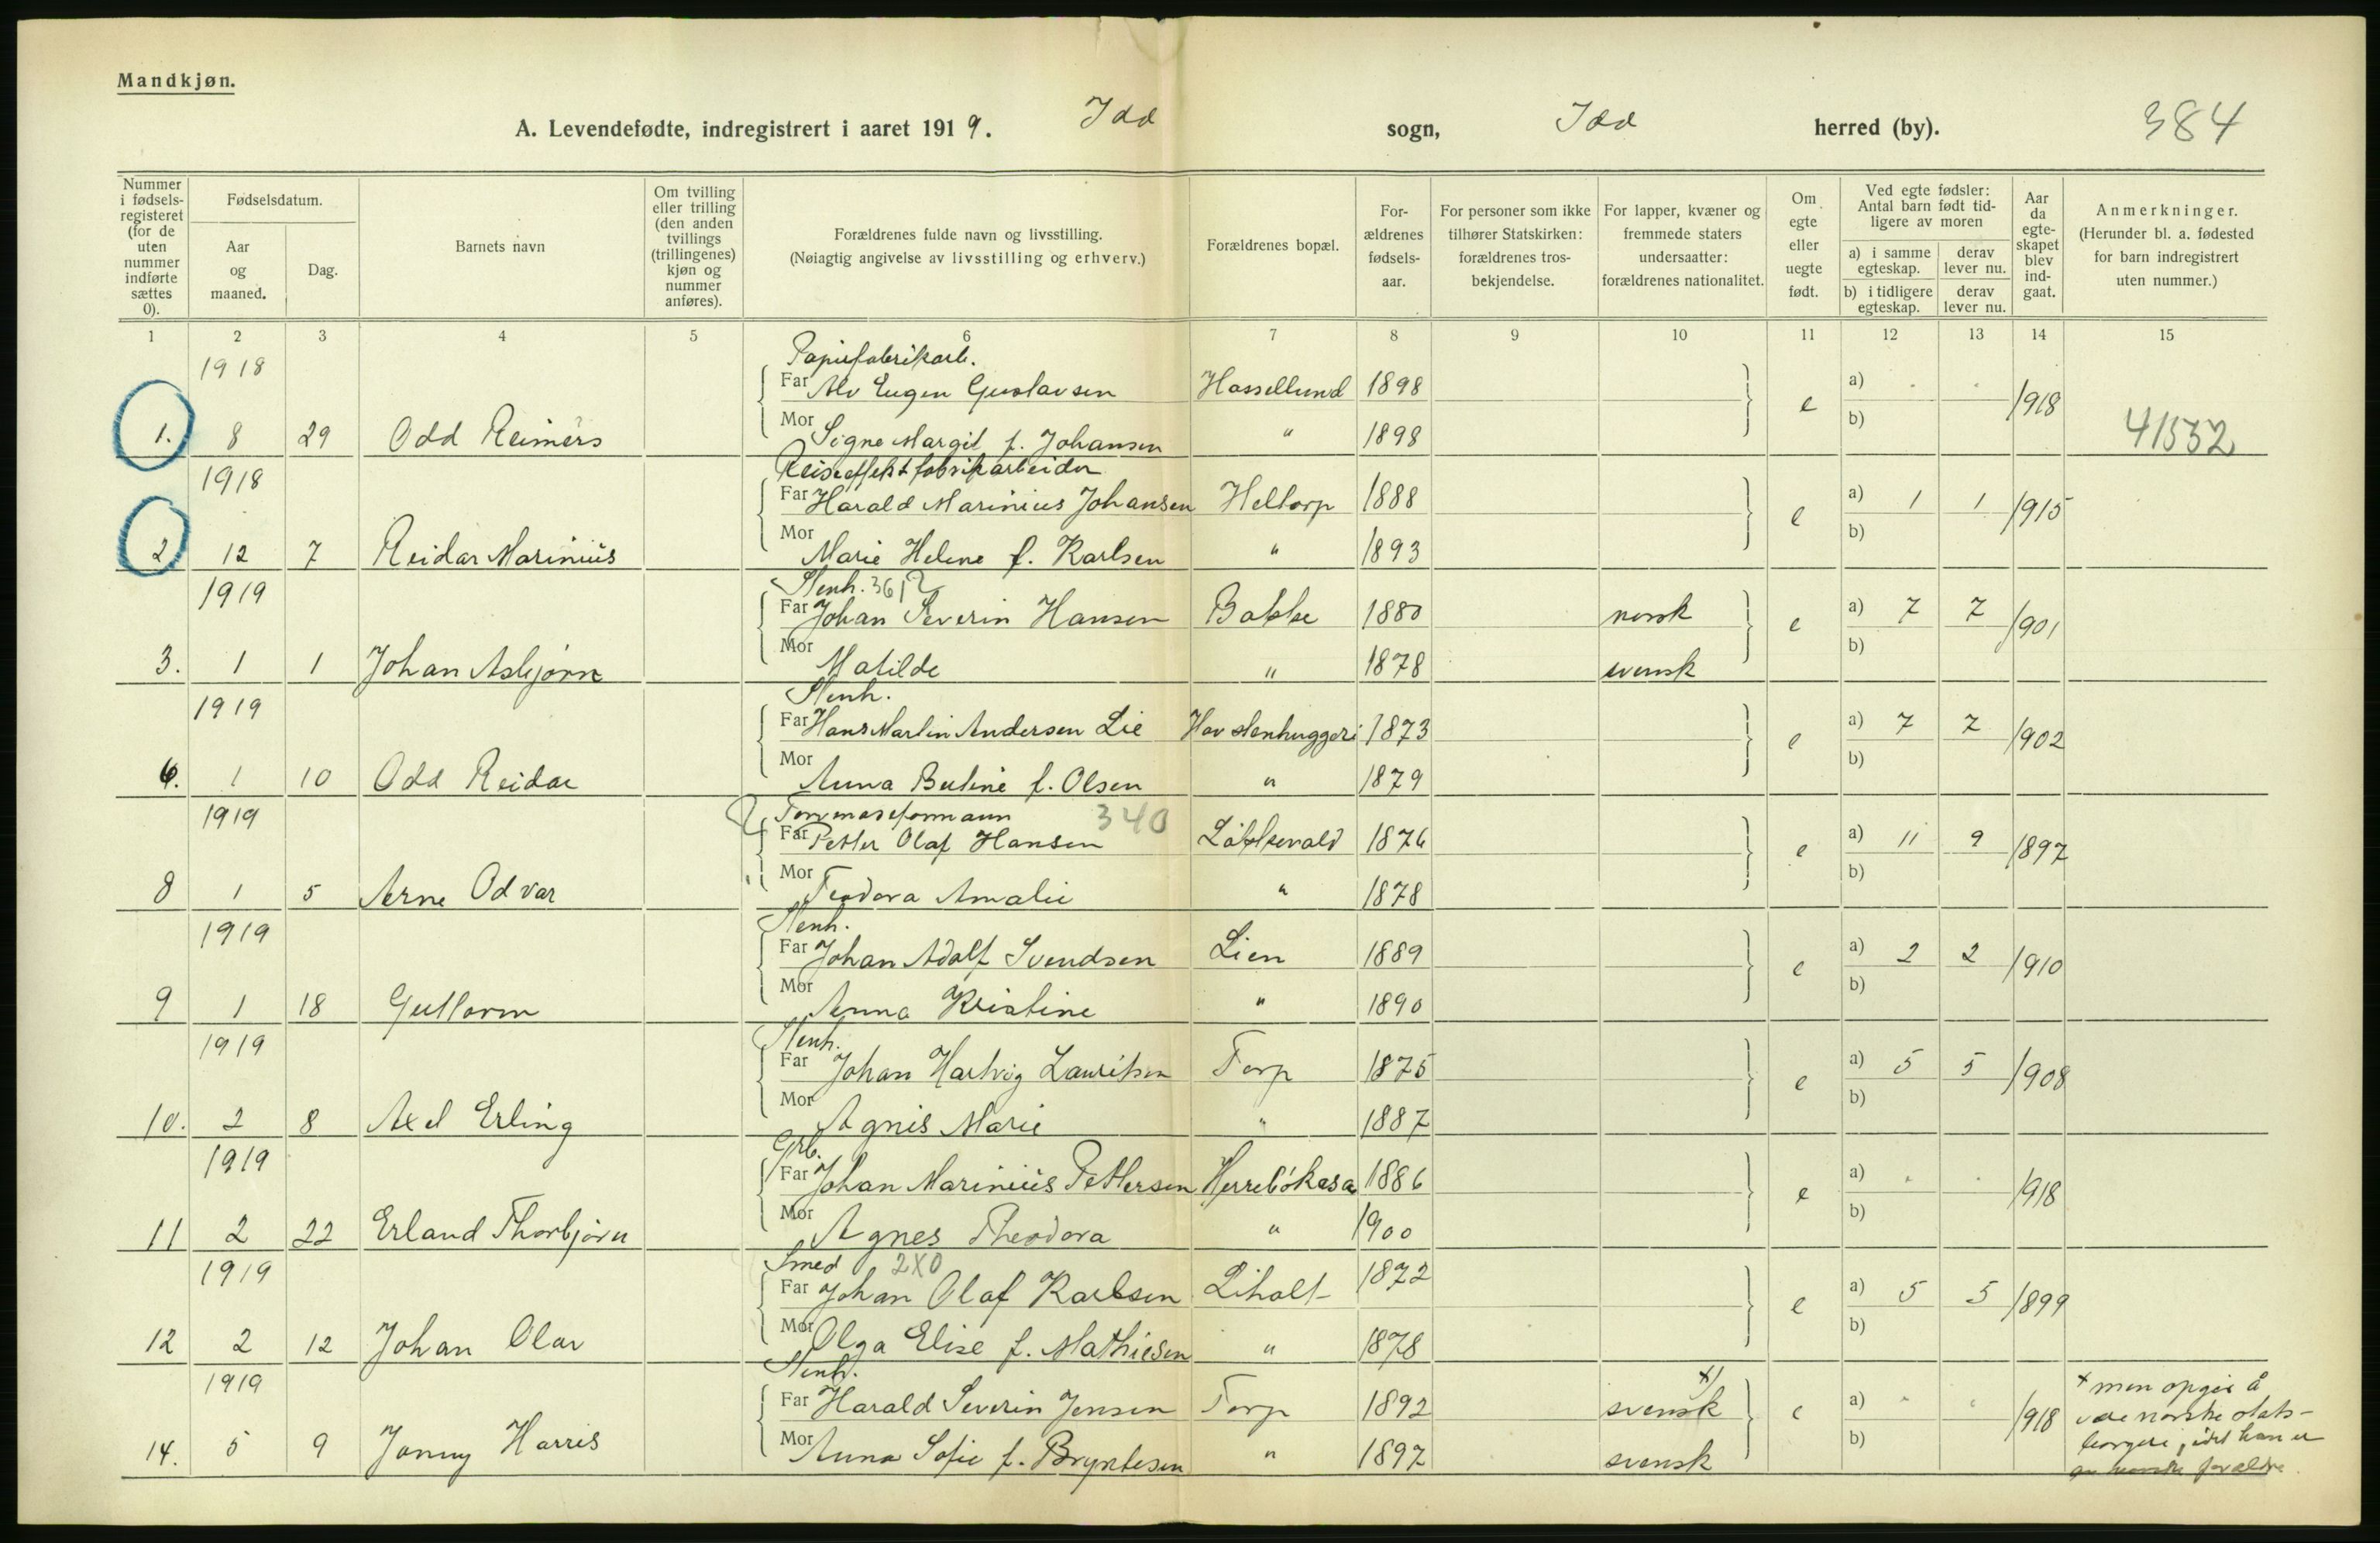 Mandkjøn.
A. Levendefødte, indregistrert i aaret 1919. Idd sogn, Idd herred (by). 384
Nummer i fødsels-registeret (for de uten nummer indførte sættes 0).
Fødselsdatum.
Aar og maaned.
Dag.
Barnets navn
Om tvilling eller trilling (den anden tvillings (trillingenes) kjøn og nummer anføres).
Forældrenes fulde navn og livsstilling.
(Nøiagtig angivelse av livsstilling og erhverv.)
Forældrenes bopæl.
For-ældrenes fødsels-aar.
For personer som ikke tilhører Statskirken: forældrenes tros-bekjendelse.
For lapper, kvæner og fremmede staters undersaatter: forældrenes nationalitet.
Om egte eller uegte født.
Ved egte fødsler: Antal barn født tid-ligere av moren
a) i samme egteskap. derav lever nu.
b) i tidligere egteskap. derav lever nu.
Aar da egte-skapet blev ind-gaat.
Anmerkninger.
(Herunder bl. a. fødested for barn indregistrert uten nummer.)
1 2 3 4 5 6 7 8 9 10 11 12 13 14 15
1918 Papirfabrikarb.
Far Alv Eugen Gustavsen Hassellund 1898 e a) 1918
1. 8 29 Odd Reimers Mor Signe Margit f. Johansen " 1898 b) 41552
1918 Reiseeffektfabrikarbeider
Far Harald Marinius Johansen Heltorp 1888 e a) 1 1 1915
2 12 7 Reidar Marinius Mor Marie Helene f. Karlsen " 1893 b)
1919 Stenh. 361
Far Johan Severin Hansen Bakke 1880 norsk e a) 7 7 1901
3. 1 1 Johan Asbjørn Mor Matilde " 1878 svensk b)
1919 Stenh.
Far Hans Martin Andersen Lie Hov stenhuggeri 1873 e a) 7 7 1902
6. 1 10 Odd Reidar Mor Anna f. Olsen " 1879 b)
1919 340
Far Petter Olaf Hansen Løkkevald 1876 e a) 11 9 1897
8 1 5 Arne Odvar Mor Teodora Amalie " 1878 b)
1919 Stenh.
Far Johan Adolf Svendsen Lien 1889 e a) 2 2 1910
9 1 18 Guttorm Mor Anna Kristine " 1890 b)
1919 Stenh.
Far Johan Hartvig Lauritsen Torp 1875 e a) 5 5 1908
10. 2 8 Axel Erling Mor Agnis Marie " 1887 b)
1919 Grb.
Far Johan Marinius Pettersen Herrebøkasa 1886 e a) 1918
11 2 22 Erland Thorbjørn Mor Agnes Theodora " 1900 b)
1919 Smed 2X0
Far Johan Olaf Karlsen Liholt 1872 e a) 5 5 1899
12 2 12 Johan Olav Mor Olga Elise f. Mathiesen " 1878 b)
1919 Stenh. x)
Far Harald Severin Jensen Torp 1892 svensk e a) 1918
14. 5 9 Jonny Harris Mor Anna Sofie f. Bryntesen " 1897 svensk b)
x men opgir å
være norske stats-
borgere, idet han er
av norske forældre.